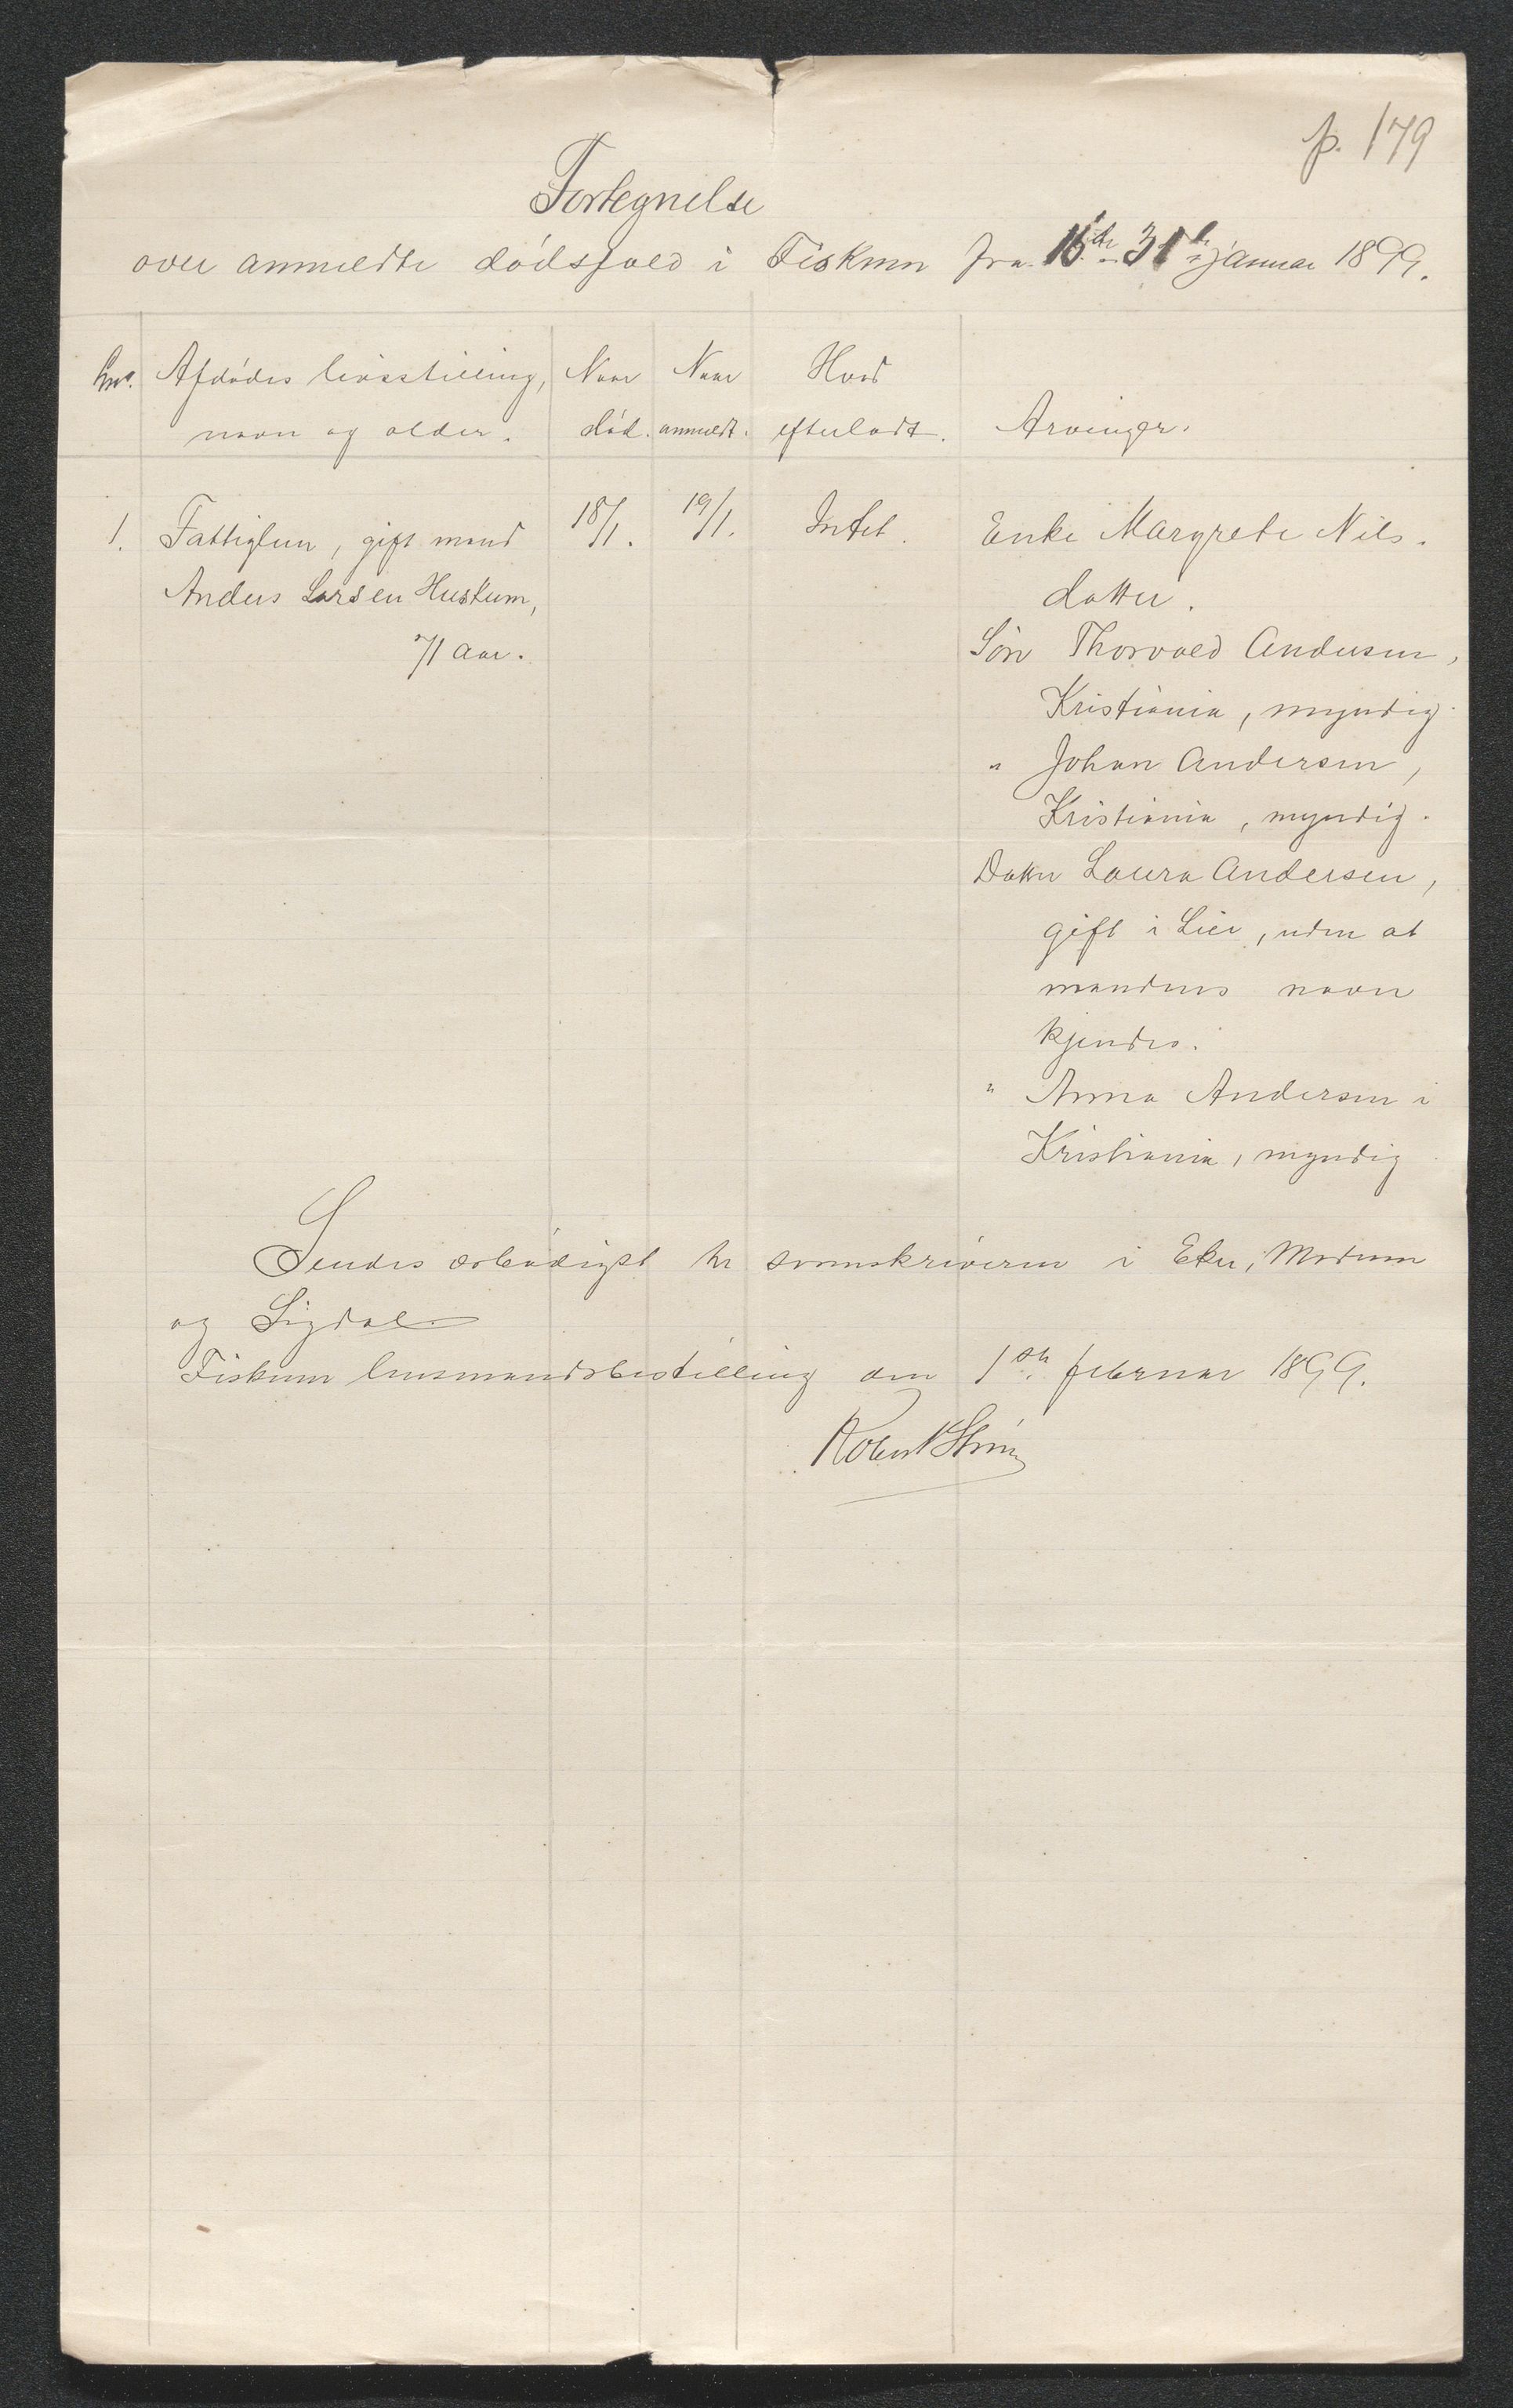 p. 179
Fortegnelse
over anmeldte dödsfald i Fiskum fra 16de - 31te januar 1899.
Lnr. Afdödes livsstilling, Naar Naar Hvad
navn og alder. död. anmeldt. efterladt. Arvinger.
1. Fattiglem, gift mand 18/1. 19/1. Intet. Enke Margrete Nils-
Anders Larsen Huskum, datter.
71 aar. Sön Thorvald Andersen,
Kristiania, myndig.
" Johan Andersen,
Kristiania, myndig.
Datter Laura Andersen,
gift i Lier, uden at
mandens navn
kjendes.
" Anna Andersen i
Kristiania, myndig
Sendes ærbödigst hr sorenskriveren i Eker, Modum
og Sigdal
Fiskum lensmandsbestilling den 1ste februar 1899.
Robert